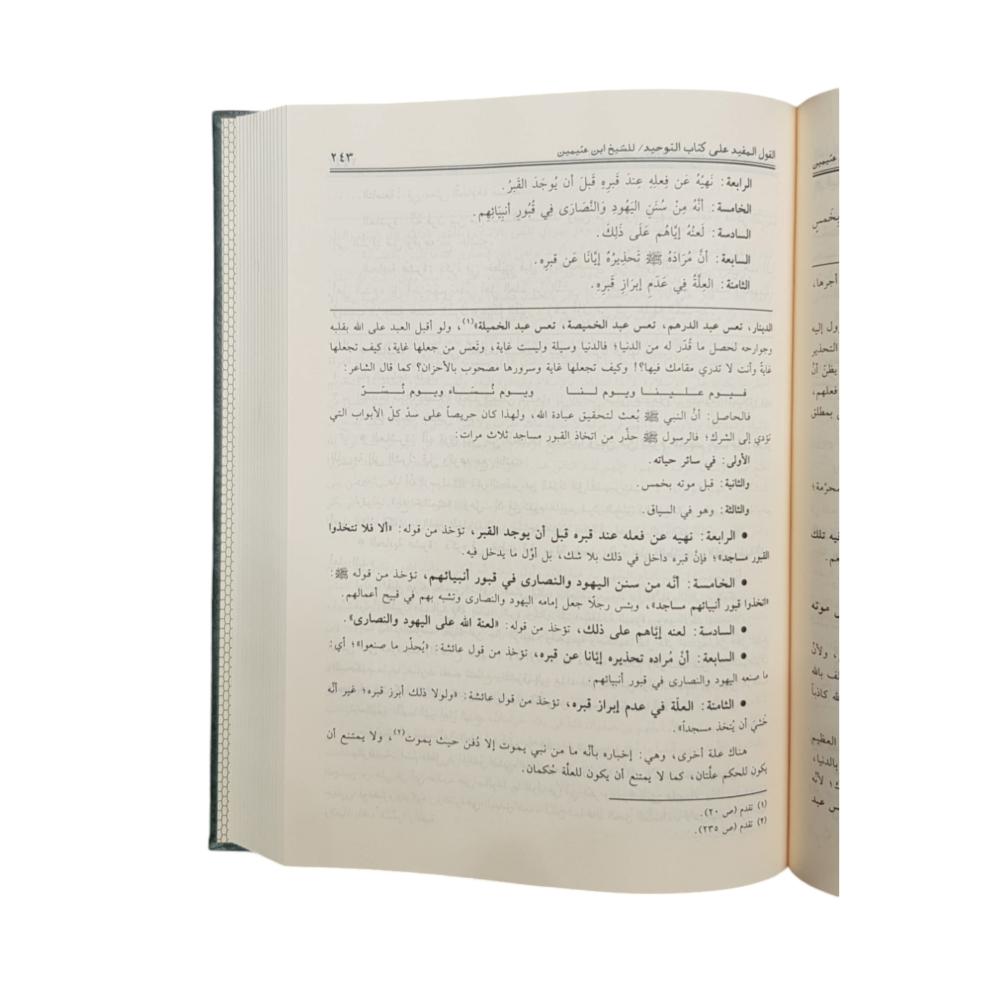 القول المفيد على كتاب التوحيد/ للشيخ ابن عثيمين ٢٤٣
الرابعة: نَهيُهُ عَن فِعلِهِ عِندَ قَبرِهِ قَبلَ أن يُوجَدَ القَبرُ.
الخامسة: أنَّهُ مِنْ سُنَنِ اليَهُودِ وَالنَّصَارَى فِي قُبُورِ أنبِيَائِهِم.
السادسة: لَعنُهُ إيَّاهُم عَلَى ذَلِكَ.
السابعة: أنَّ مُرَادَهُ ﷺ تَحذِيرُهُ إيَّانَا عَن قَبرِهِ.
الثامنة: العِلَّةُ فِي عَدَمِ إبرَازِ قَبرِهِ.
الدينار، تعس عبد الدرهم، تعس عبد الخميصة، تعس عبد الخميلة»(١)، ولو أقبل العبد على الله بقلبه
وجوارحه لحصل ما قُدِّر له من الدنيا؛ فالدنيا وسيلة وليست غاية، وتَعس من جعلها غاية، كيف تجعلها
غايةً وأنت لا تدري مقامك فيها؟! وكيف تجعلها غاية وسرورها مصحوب بالأحزان؟ كما قال الشاعر:
فـيـوم عـلـيـنـا ويـوم لـنـا ويـوم نُـسَـاء ويـوم نُـسَـرّ
فالحاصل: أنَّ النبي ﷺ بُعث لتحقيق عبادة الله، ولهذا كان حريصاً على سدّ كلّ الأبواب التي
تؤدي إلى الشرك؛ فالرسول ﷺ حذَّر من اتخاذ القبور مساجد ثلاث مرات:
الأولى: في سائر حياته.
والثانية: قبل موته بخمس.
والثالثة: وهو في السياق.
• الرابعة: نهيه عن فعله عند قبره قبل أن يوجد القبر، تؤخذ من قوله: «ألا فلا تتخذوا
القبور مساجد»؛ فإنَّ قبره داخل في ذلك بلا شك، بل أوَّل ما يدخل فيه.
• الخامسة: أنَّه من سنن اليهود والنصارى في قبور أنبيائهم، تؤخذ من قوله ﷺ:
«اتخذوا قبور أنبيائهم مساجد»، وبئس رجلًا جعل إمامه اليهود والنصارى وتشبه بهم في قبيح أعمالهم.
• السادسة: لعنه إيَّاهم على ذلك، تؤخذ من قوله: «لعنة الله على اليهود والنصارى».
• السابعة: أنَّ مُراده تحذيره إيَّانا عن قبره، تؤخذ من قول عائشة: «يُحذّر ما صنعوا»؛ أي:
ما صنعه اليهود والنصارى في قبور أنبيائهم.
• الثامنة: العلّة في عدم إبراز قبره، تؤخذ من قول عائشة: «ولولا ذلك أبرز قبره؛ غير أنَّه
خُشيَ أن يُتخذ مسجداً».
هناك علة أخرى، وهي: إخباره بأنَّه ما من نبي يموت إلا دُفن حيث يموت(٢)، ولا يمتنع أن
يكون للحكم علّتان، كما لا يمتنع أن يكون للعلّة حُكمان.
(١) تقدم (ص ٢٠).
(٢) تقدم (ص ٢٣٥).